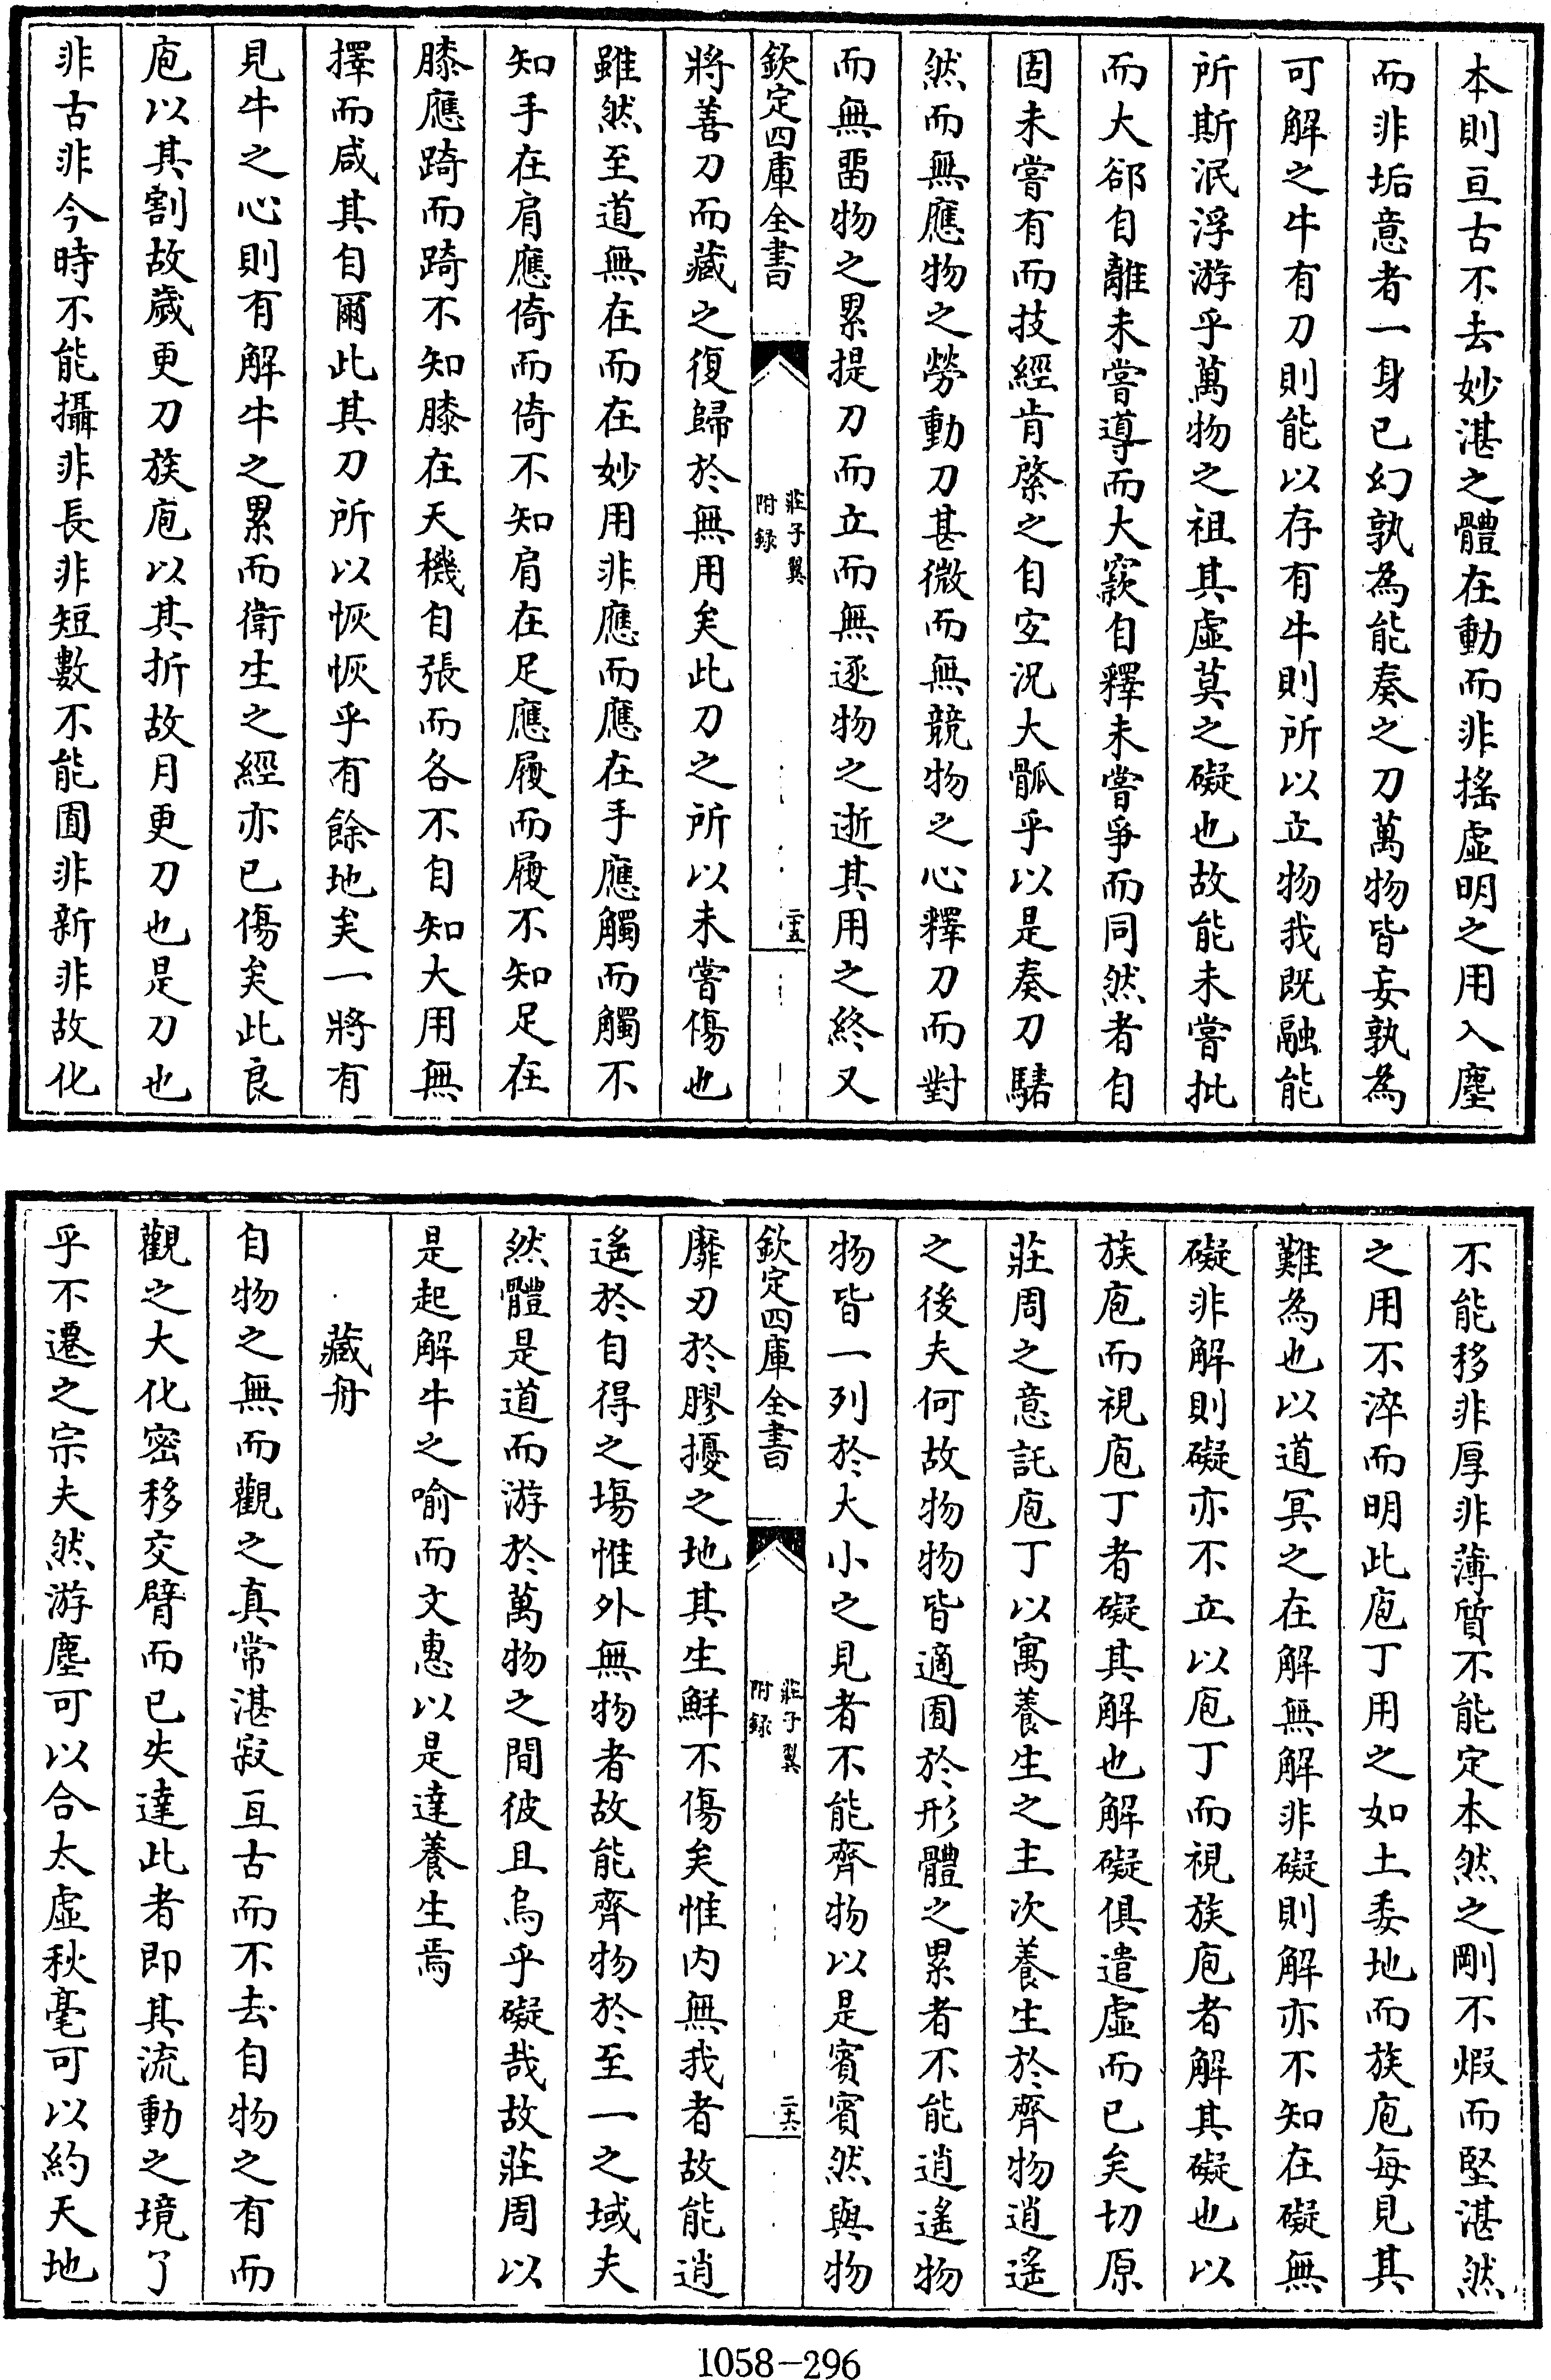 本則亘古不去妙湛之體在動而非搖虛明之用入塵
而非垢意者一身已幻孰為能奏之刀萬物皆妄孰為
可解之牛有刀則能以存有牛則所以立物我既融能
所斯泯浮游乎萬物之祖其虛莫之礙也故能未嘗批
而大郤自離未嘗導而大窾自釋未嘗爭而同然者自
固未嘗有而技經肯綮之自空況大骽乎以是奏刀騞
然而無應物之勞動刀甚微而無競物之心釋刀而對
而無留物之累提刀而立而無逐物之逝其用之終又
欽定四庫全書
莊子翼
附録
二十五
將善刀而藏之復歸於無用矣此刀之所以未嘗傷也
雖然至道無在而在妙用非應而應在手應觸而觸不
知手在肩應倚而倚不知肩在足應履而履不知足在
膝應踦而踦不知膝在天機自張而各不自知大用無
擇而咸其自爾此其刀所以恢恢乎有餘地矣一將有
見牛之心則有解牛之累而衛生之經亦已傷矣此良
庖以其割故歲更刀族庖以其折故月更刀也是刀也
非古非今時不能攝非長非短數不能囿非新非故化
不能移非厚非薄質不能定本然之剛不煆而堅湛然
之用不淬而明此庖丁用之如土委地而族庖每見其
難為也以道冥之在解無解非礙則解亦不知在礙無
礙非解則礙亦不立以庖丁而視族庖者解其礙也以
族庖而視庖丁者礙其解也解礙俱遣虛而已矣切原
莊周之意託庖丁以寓養生之主次養生於齊物逍遙
之後夫何故物物皆適囿於形體之累者不能逍遙物
物皆一列於大小之見者不能齊物以是賓賓然與物
欽定四庫全書
莊子翼
附録
二十六
靡刃於膠擾之地其生鮮不傷矣惟內無我者故能逍
遙於自得之塲惟外無物者故能齊物於至一之域夫
然體是道而游於萬物之間彼且烏乎礙哉故莊周以
是起解牛之喻而文惠以是達養生焉
藏舟
自物之無而觀之真常湛寂亘古而不去自物之有而
觀之大化密移交臂而已失達此者即其流動之境了
乎不遷之宗夫然游塵可以合太虛秋毫可以約天地
1058-296